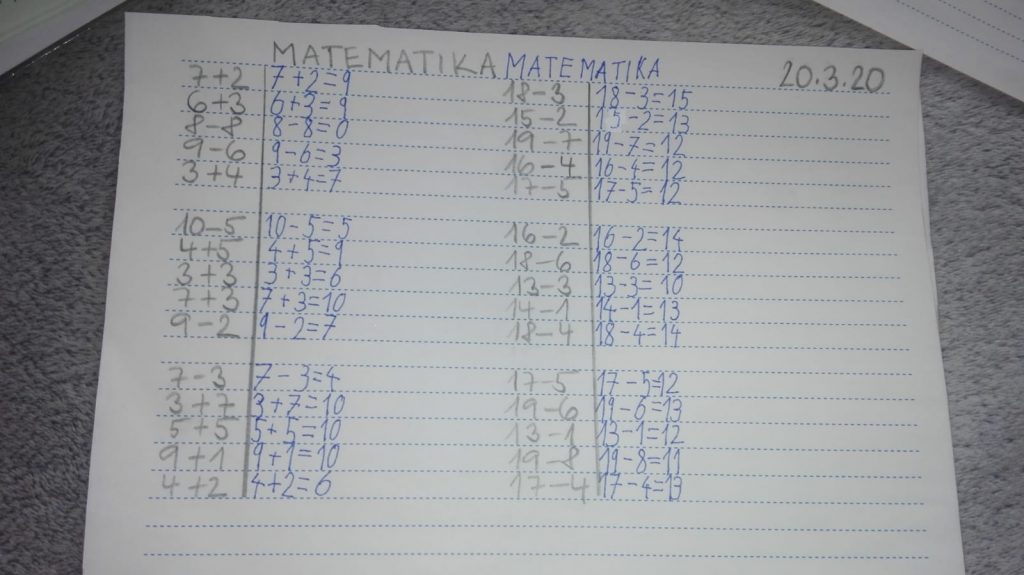 MATEMATIKA MATEMATIKA 20.3.20
7+2 7+2=9
6+3 6+3=9
8-8 8-8=0
9-6 9-6=3
3+4 3+4=7
10-5 10-5=5
4+5 4+5=9
3+3 3+3=6
7+3 7+3=10
9-2 9-2=7
7-3 7-3=4
3+7 3+7=10
5+5 5+5=10
9+1 9+1=10
4+2 4+2=6
18-3 18-3=15
15-2 15-2=13
19-7 19-7=12
16-4 16-4=12
17-5 17-5=12
16-2 16-2=14
18-6 18-6=12
13-3 13-3=10
14-1 14-1=13
18-4 18-4=14
17-5 17-5=12
19-6 19-6=13
13-1 13-1=12
19-8 19-8=11
17-4 17-4=13